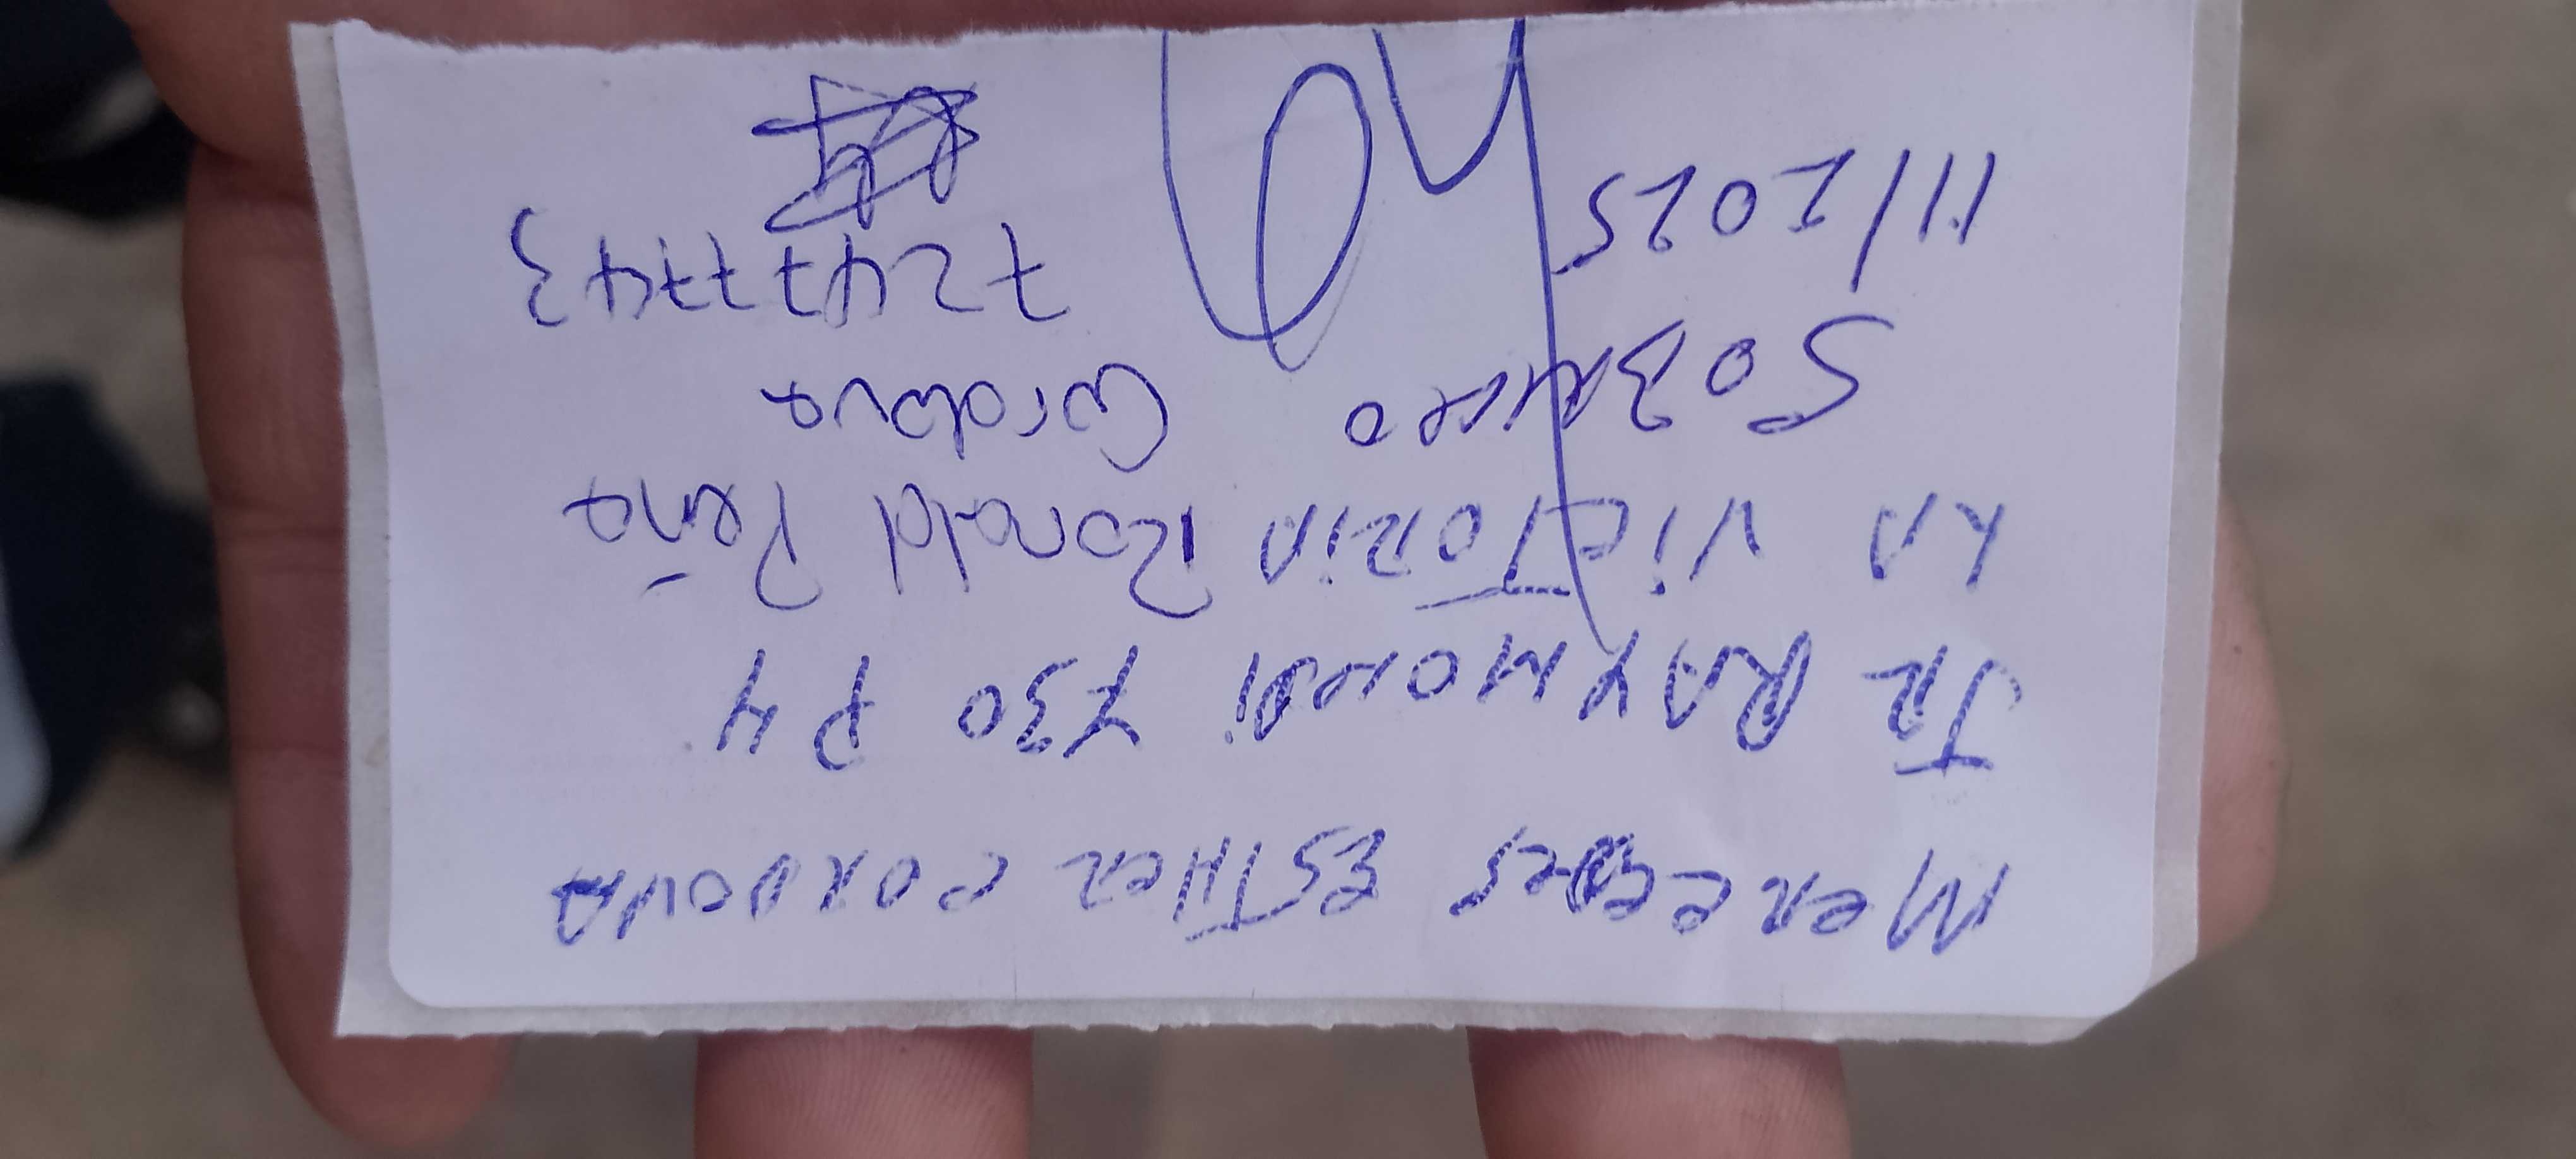 MERCEDES ESTHER CORDOVA
JR RAYMONDI 730 P4
LA VICTORIA Ronald Peña
SOBRINO Cordova
72477743
11/2025